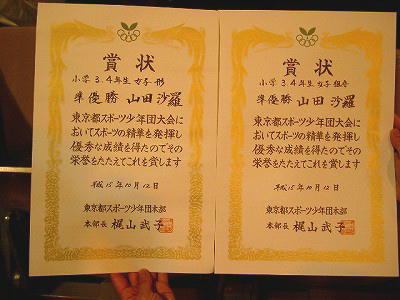 賞状
小学3.4年生女子形
準優勝 山田沙羅
東京都スポーツ少年団大会に
おいてスポーツの精華を発揮し
優秀な成績を得たのでその
栄誉をたたえてこれを賞します
平成15年10月12日
東京都スポーツ少年団本部
本部長 梶山武子
賞状
小学3.4年生女子組手
準優勝 山田沙羅
東京都スポーツ少年団大会に
おいてスポーツの精華を発揮し
優秀な成績を得たのでその
栄誉をたたえてこれを賞します
平成15年10月12日
東京都スポーツ少年団本部
本部長 梶山武子